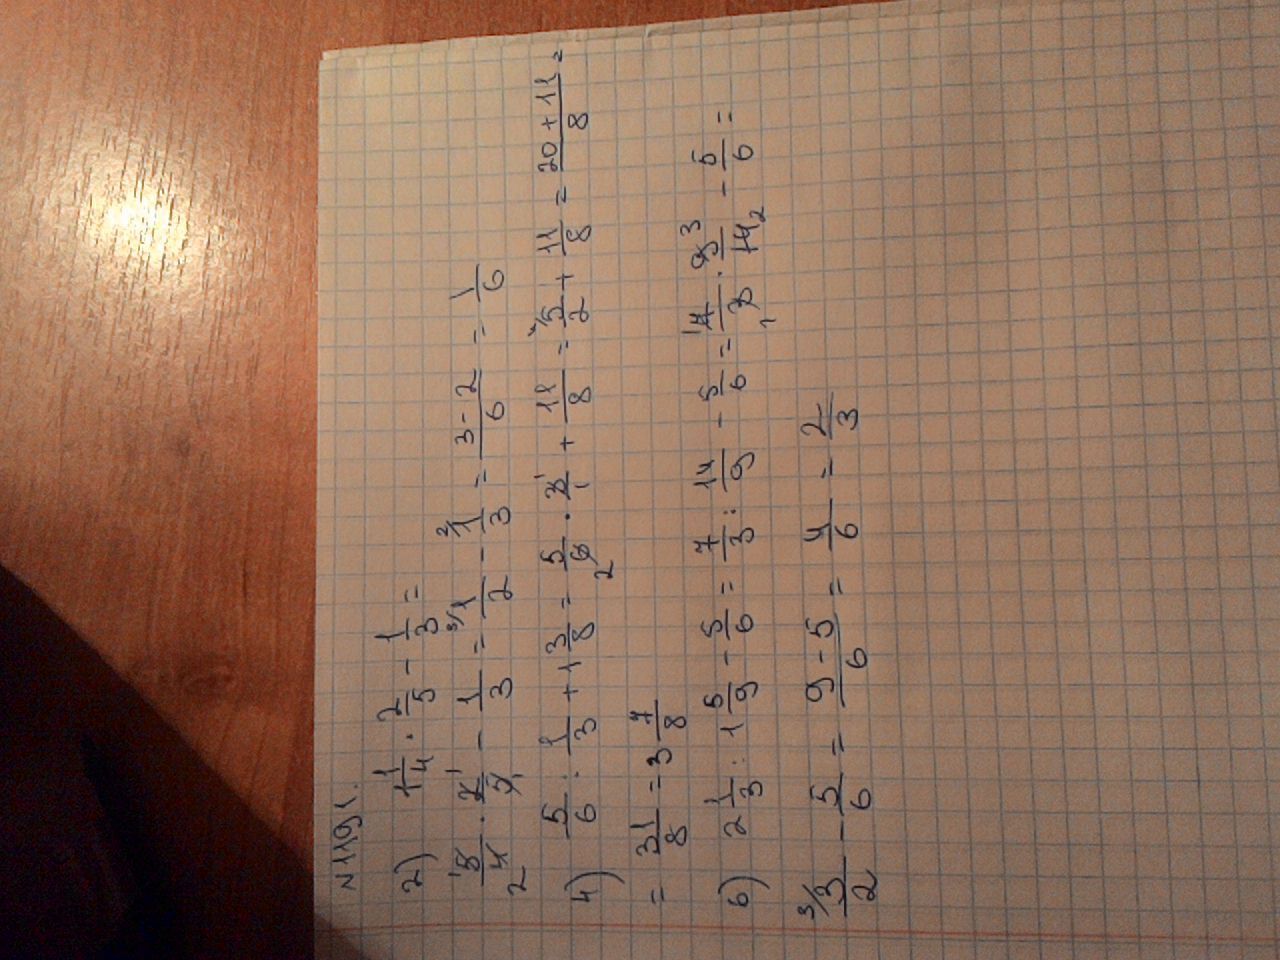 № 1191.
2) 1 1/4 · 2/5 - 1/3 =
5/4 · 2/5 - 1/3 = 1/2 - 1/3 = 3-2/6 = 1/6
4) 5/6 : 1/3 + 1 3/8 = 5/6 · 3/1 + 11/8 = 5/2 + 11/8 = 20+11/8 =
= 31/8 = 3 7/8
6) 2 1/3 : 1 5/9 - 5/6 = 7/3 : 14/9 - 5/6 = 7/3 · 9/14 - 5/6 =
3/2 - 5/6 = 9-5/6 = 4/6 = 2/3